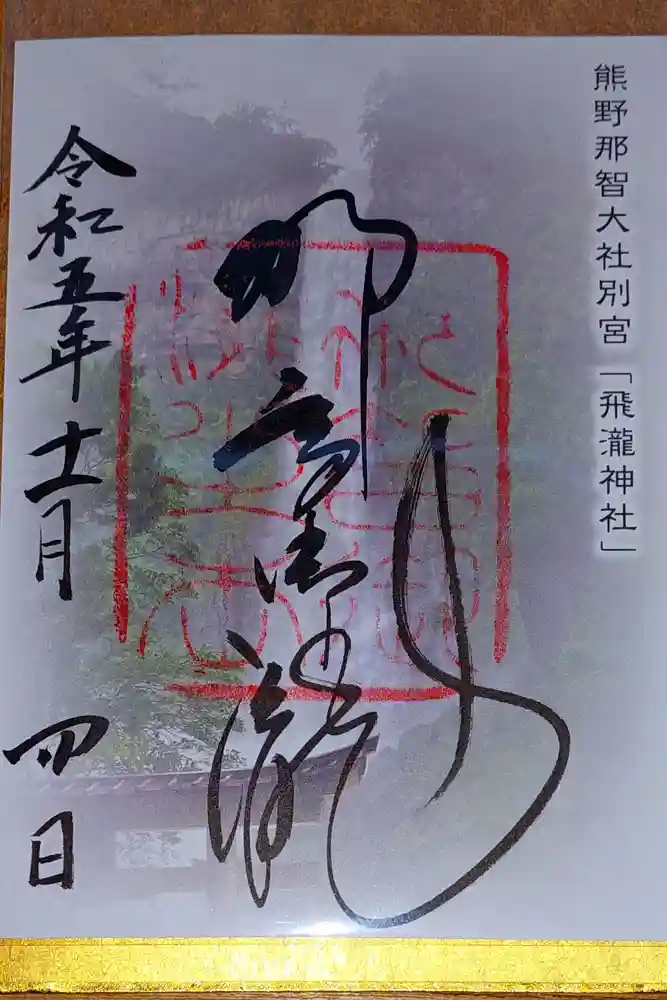 熊野那智大社別宮「飛瀧神社」
那智御瀧
令和五年十一月四日